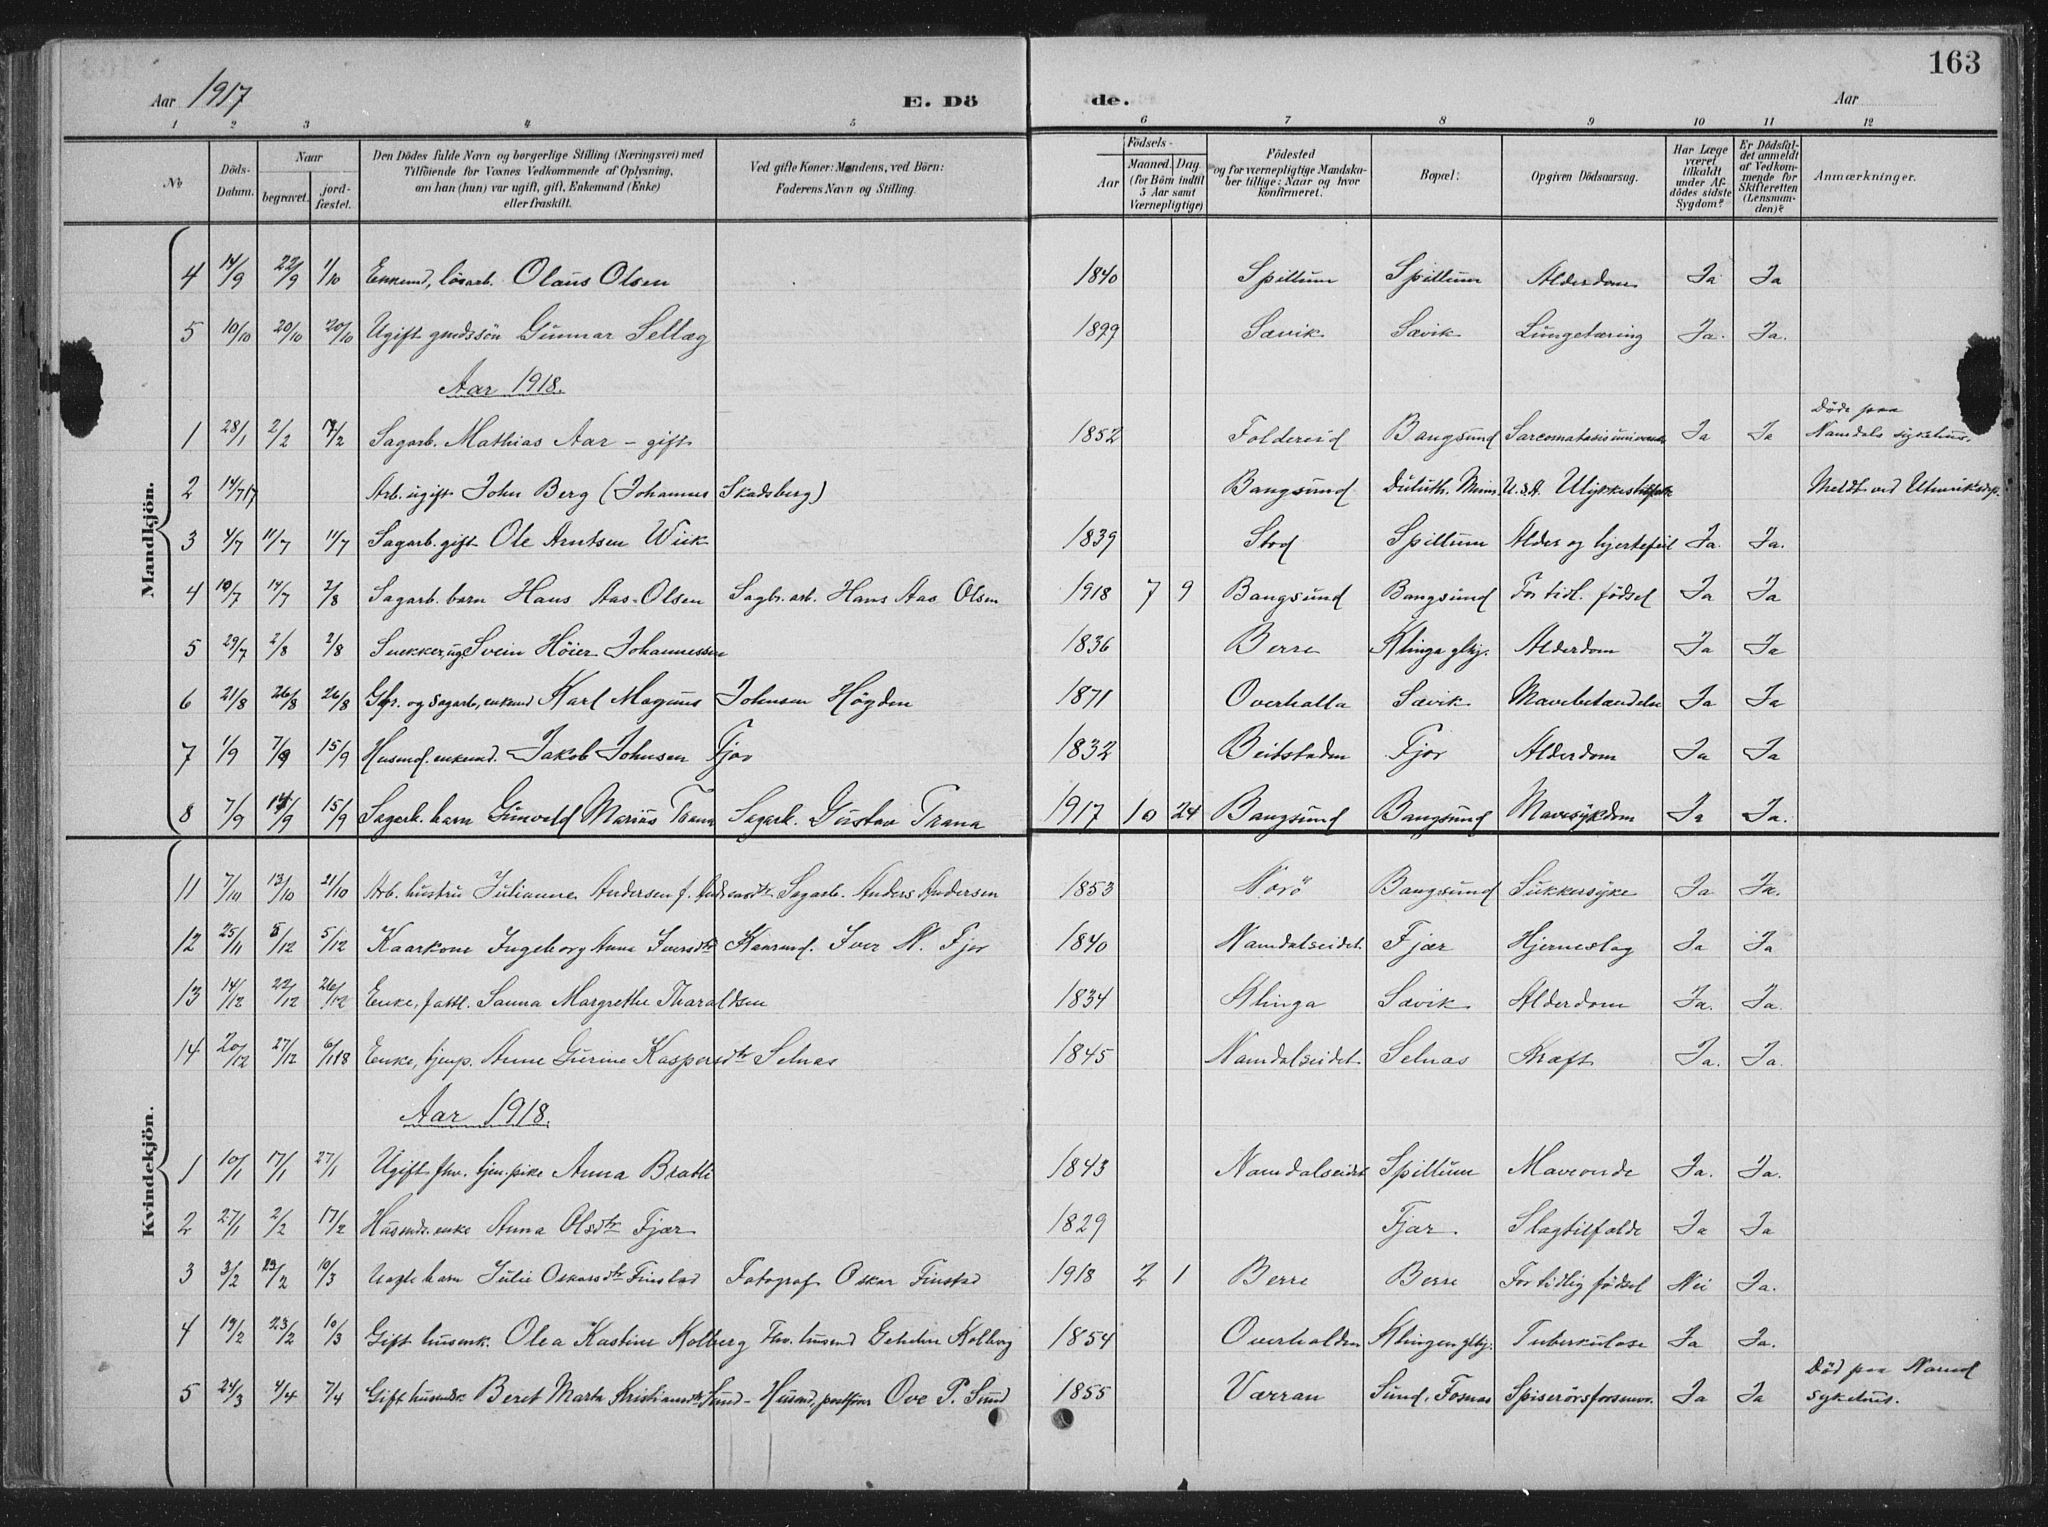 163
Aar 1917 E. Dö de. Aar
1 2 3 4 5 6 7 8 9 10 11 12
No
Döds-Datum.
Naar
begravet.
jord-fæstet.
Den Dödes fulde Navn og borgerlige Stilling (Næringsvei) med
Tilföiende for Voxnes Vedkommende af Oplysning,
om han (hun) var ugift, gift, Enkemand (Enke)
eller fraskilt.
Ved gifte Koner: Mandens, ved Börn:
Faderens Navn og Stilling.
Födsels-
Aar
Maaned. Dag.
(for Börn indtil
5 Aar samt
Værnepligtige)
Födested
og for værnepligtige Mandskaber tillige: Naar og hvor
konfirmeret.
Bopæl:
Opgiven Dödsaarsag.
Har Læge
været
tilkaldt
under Afdödes sidste
Sygdom?
Er Dödsfaldet anmeldt
af Vedkommende for
Skifteretten
(Lensmanden)?
Anmærkninger.
Mandkjön.
4 14/9 22/9 1/10 Enkemd, lösarb. Olaus Olsen 1840 Spillum Spillum Alderdom Ja Ja
5 10/10 20/10 20/10 Ugift gmdssön Gunnar Sellæg 1899 Sævik Sævik Lungetæring Ja. Ja.
Aar 1918.
1 28/1 2/2 17/2 Sagarb. Mathias Aar - gift 1852 Foldereid Bangsund Sarcomatosis Ja Ja Döde paa Namdals sykehus.
2 14/7 17 Arb. ugift John Berg (Johannes Skadsberg) Bangsund Duluth. Minn. U.S.A. Ulykkestilfælde Meldt ved Utenriksdep.
3 4/7 11/7 11/7 Sagarb. gift Ole Arntsen Wiik 1839 Stod Spillum Alder og hjertefeil Ja. Ja.
4 10/7 14/7 2/8 Sagarb. barn Hans Aas-Olsen Sagbr. arb. Hans Aas Olsen 1918 7 9 Bangsund Bangsund For tidl. födsel Ja Ja
5 29/7 2/8 2/8 Snekker, ug Svein Höier Johannessen 1836 Berre Klinga Alderdom Ja Ja
6 21/8 26/8 26/8 og sagarb, enkemd Karl Magnus Johnsen Högden 1871 Overhalla Sævik Mavebetændelse Ja Ja
7 1/9 7/9 15/9 Husmd. enkemd. Jakob Johnsen Fjær 1832 Beitstaden Fjær Alderdom Ja Ja
8 7/9 14/9 15/9 Sagarb. barn Gunvald Marius Trana Sagarb. Gustav Trana 1917 10 24 Bangsund Bangsund Mavesykdom Ja Ja.
Kvindekjön.
11 7/10 13/10 21/10 Arb. hustru Julianne Andersen f. Andersdtr Sagarb. Anders Andersen 1853 Norö Bangsund Sukkersyke Ja Ja.
12 25/11 5/12 5/12 Kaarkone Ingeborg Anna Iversdtr Kaarmd. Iver N. Fjær 1840 Namdalseidet. Fjær Hjerneslag Ja Ja
13 14/12 22/12 26/12 Enke, fattl. Sanna Margrethe Tharaldsen 1834 Klinga Sævik Alderdom Ja. Ja.
14 20/12 27/12 6/1 18 Enke, Anne Gurine Kaspersdtr Selnæs 1845 Namdalseidet Selnæs Kræft Ja. Ja.
Aar 1918.
1 10/1 17/1 27/1 Ugift fhv. tjen.pike Anna Bratli 1843 Namdalseidet Spillum Maveonde Ja. Ja.
2 27/1 2/2 17/2 Husmds. enke Anna Olsdtr Fjær 1829 Fjær. Slagtilfælde Ja Ja
3 3/2 23/2 10/3 Uægte barn Julie Oskarsdtr Finstad Fotograf Oskar Finstad 1918 2 1 Berre Berre For tidlig födsel Nei Ja.
4 19/2 23/2 10/3 Gift husmk. Olea Kastine Kolberg Fhv. husmd Kolberg 1854 Overhalden Tuberkulose Ja Ja.
5 24/3 4/4 7/4 Gift husmdsk. Beret Marta Kristiansdtr Sund - Husmd, postförer Ove P. Sund 1855 Værran Sund, Fosnæs Spiserörsforsnevr. Ja Ja Död paa Namd sykehus.